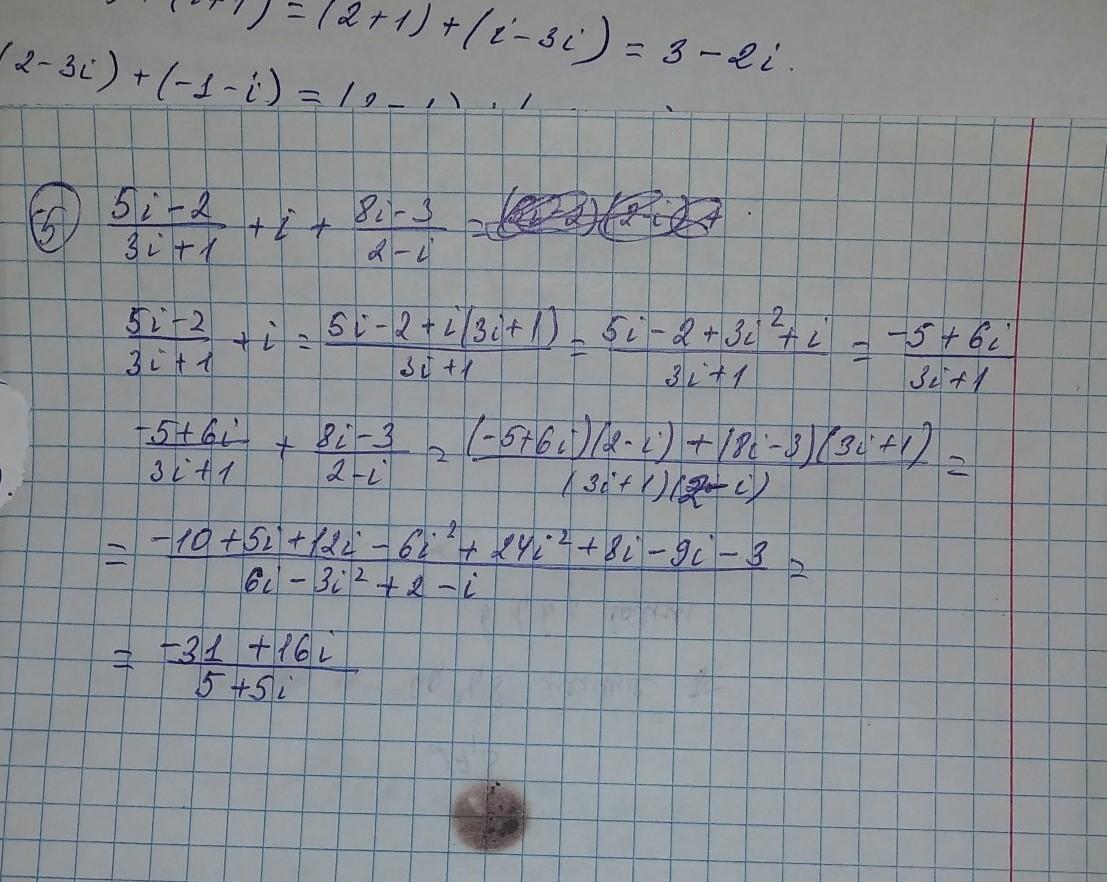 (i+1) = (2+1) + (i-3i) = 3-2i.
(2-3i) + (-1-i) =
5 (5i-2)/(3i+1) + i + (8i-3)/(2-i) =
(5i-2)/(3i+1) + i = (5i-2+i(3i+1))/(3i+1) = (5i-2+3i²+i)/(3i+1) = (-5+6i)/(3i+1)
(-5+6i)/(3i+1) + (8i-3)/(2-i) = ((-5+6i)(2-i)+(8i-3)(3i+1))/((3i+1)(2-i)) =
= (-10+5i+12i-6i²+24i²+8i-9i-3)/(6i-3i²+2-i) =
= (-31+16i)/(5+5i)